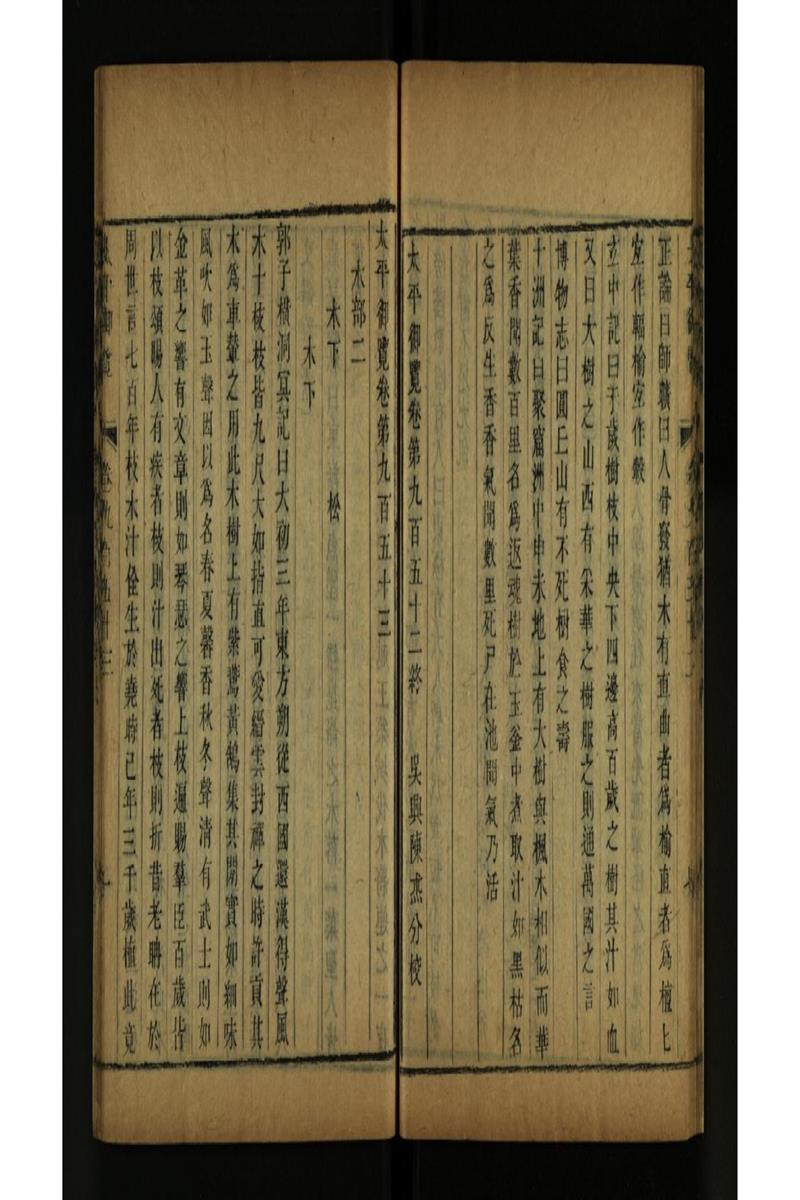 正論曰師曠曰人骨發猶木有直曲者爲榆直者爲檀七
室作輻榆室作轂
玄中記曰千歲樹枝中央下四邊高百歲之樹其汁如血
又曰大樹之山西有采華之樹服之則通萬國之言
博物志曰圓丘山有不死樹食之壽
十洲記曰聚窟洲中申未地上有大樹與楓木相似而華
葉香聞數百里名爲返魂樹於玉釜中煮取汁如黑枯名
之爲反生香香氣聞數里死尸在池聞氣乃活
太平御覽卷第九百五十二終 吳興陳杰分校
太平御覽卷第九百五十三
木部二
木下 松
木下
郭子橫洞冥記曰大初三年東方朔從西國還漢得聲風
木十枝枝皆九尺大如指直可愛縉雲封禪之時許貢其
木爲車輦之用此木樹上有紫鷰黃鵠集其閒實如細味
風吹如玉聲因以爲名春夏馨香秋冬聲清有武士則如
金革之響有文章則如琴瑟之響上枝遍賜羣臣百歲皆
以枝頒賜人有疾者枝則汁出死者枝則折昔老聃在於
周世言七百年枝木汁佺生於堯時已年三千歲植此竟